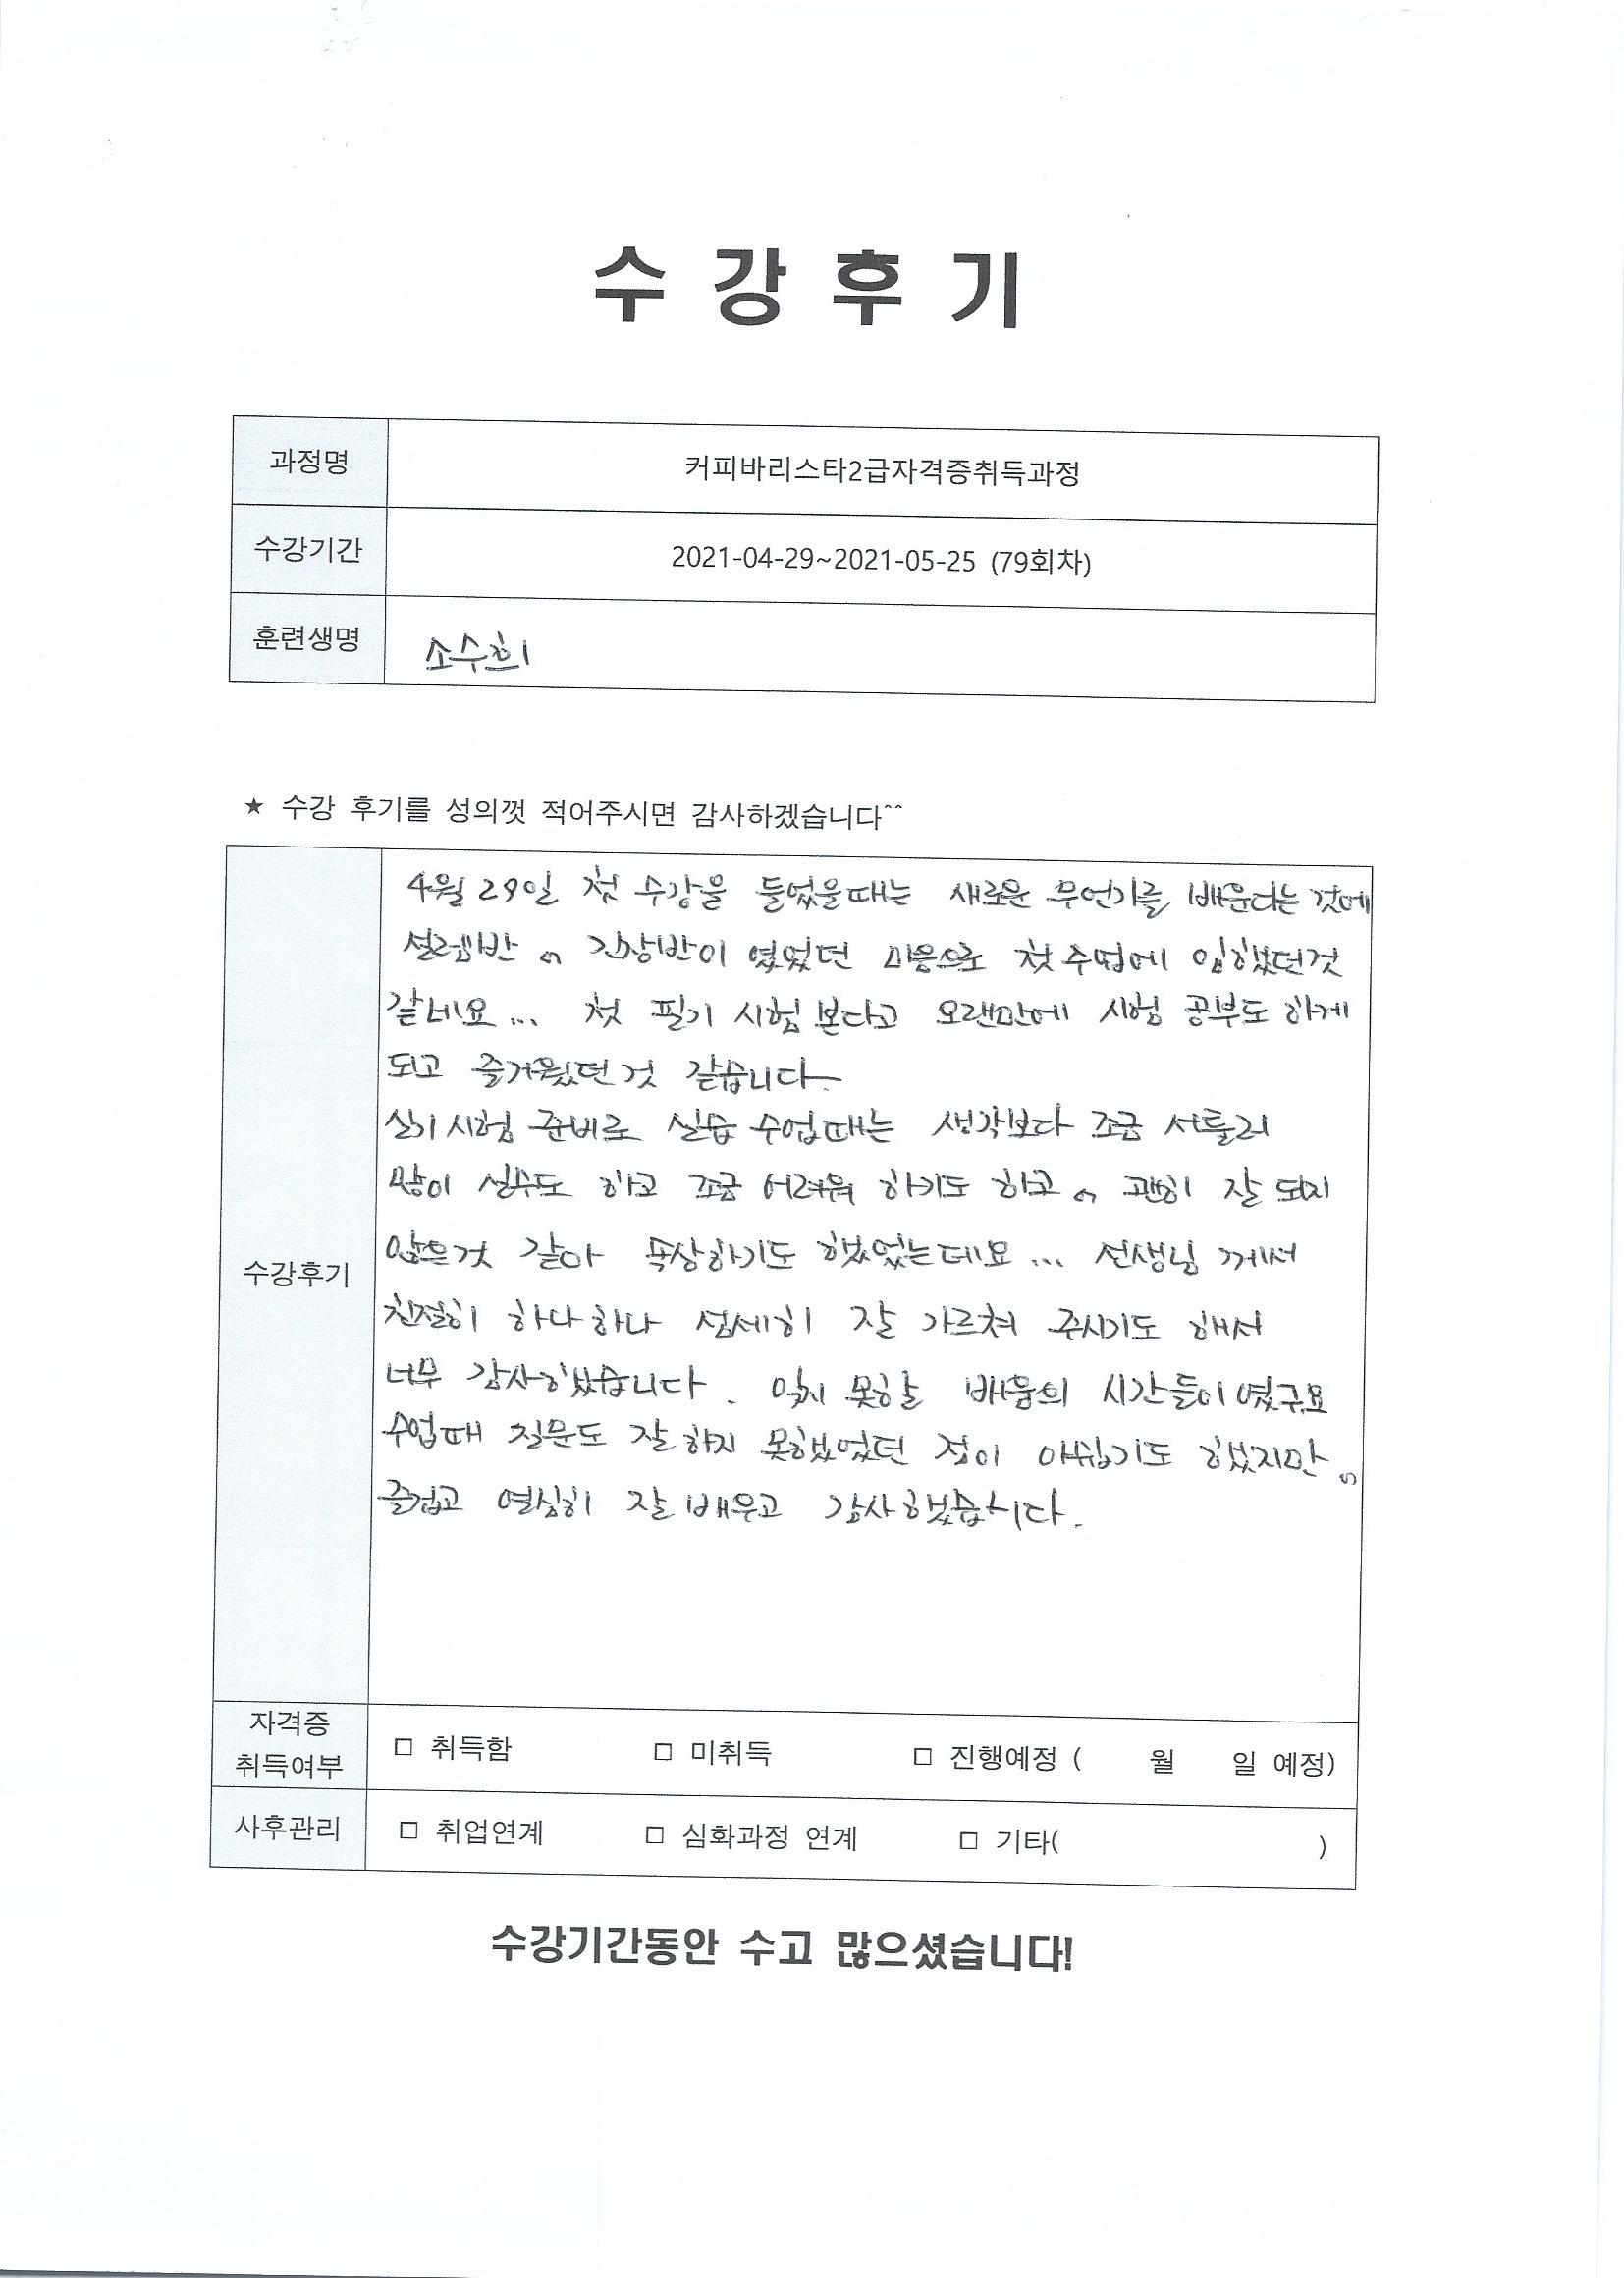 수 강 후 기
과정명 커피바리스타2급자격증취득과정
수강기간 2021-04-29~2021-05-25 (79회차)
훈련생명 소수희
★ 수강 후기를 성의껏 적어주시면 감사하겠습니다^^
수강후기
4월 29일 첫 수강을 들었을때는 새로운 무언가를 배운다는 것에
설렘반 긴장반이 였었던 마음으로 첫 수업에 임했던것
같네요... 첫 필기 시험 본다고 오랜만에 시험 공부도 하게
되고 즐거웠던 것 같습니다.
실기 시험 준비로 실습 수업때는 생각보다 조금 서툴러
많이 실수도 하고 조금 어려워 하기도 하고 괜히 잘 되지
않은것 같아 속상하기도 했었는데요... 선생님 께서
친절히 하나하나 섬세히 잘 가르쳐 주시기도 해서
너무 감사했습니다. 잊지 못할 배움의 시간들이였구요
수업때 질문도 잘 하지 못했었던 점이 아쉽기도 했지만
즐겁고 열심히 잘 배우고 감사했습니다.
자격증 취득여부 □ 취득함 □ 미취득 □ 진행예정 ( 월 일 예정)
사후관리 □ 취업연계 □ 심화과정 연계 □ 기타( )
수강기간동안 수고 많으셨습니다!